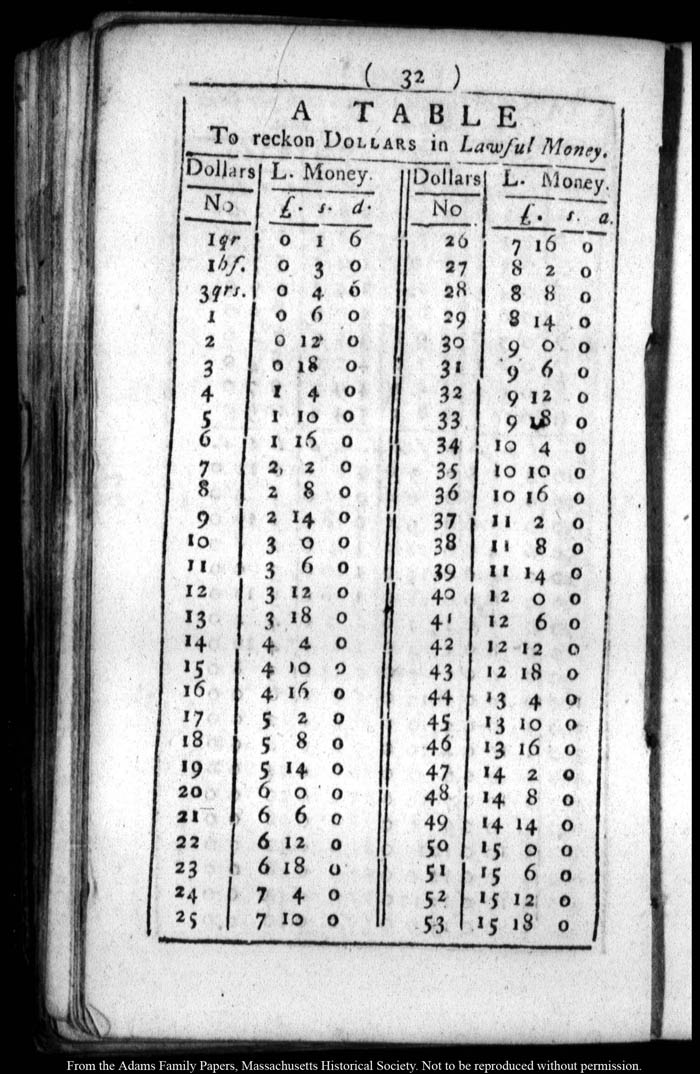 ( 32 )
A TABLE
To reckon DOLLARS in Lawful Money.
Dollars L. Money. Dollars L. Money.
No £. s. d. No £. s. d.
1qr 0 1 6 26 7 16 0
1hf. 0 3 0 27 8 2 0
3qrs. 0 4 6 28 8 8 0
1 0 6 0 29 8 14 0
2 0 12 0 30 9 0 0
3 0 18 0 31 9 6 0
4 1 4 0 32 9 12 0
5 1 10 0 33 9 18 0
6 1 16 0 34 10 4 0
7 2 2 0 35 10 10 0
8 2 8 0 36 10 16 0
9 2 14 0 37 11 2 0
10 3 0 0 38 11 8 0
11 3 6 0 39 11 14 0
12 3 12 0 40 12 0 0
13 3 18 0 41 12 6 0
14 4 4 0 42 12 12 0
15 4 10 0 43 12 18 0
16 4 16 0 44 13 4 0
17 5 2 0 45 13 10 0
18 5 8 0 46 13 16 0
19 5 14 0 47 14 2 0
20 6 0 0 48 14 8 0
21 6 6 0 49 14 14 0
22 6 12 0 50 15 0 0
23 6 18 0 51 15 6 0
24 7 4 0 52 15 12 0
25 7 10 0 53 15 18 0
From the Adams Family Papers, Massachusetts Historical Society. Not to be reproduced without permission.